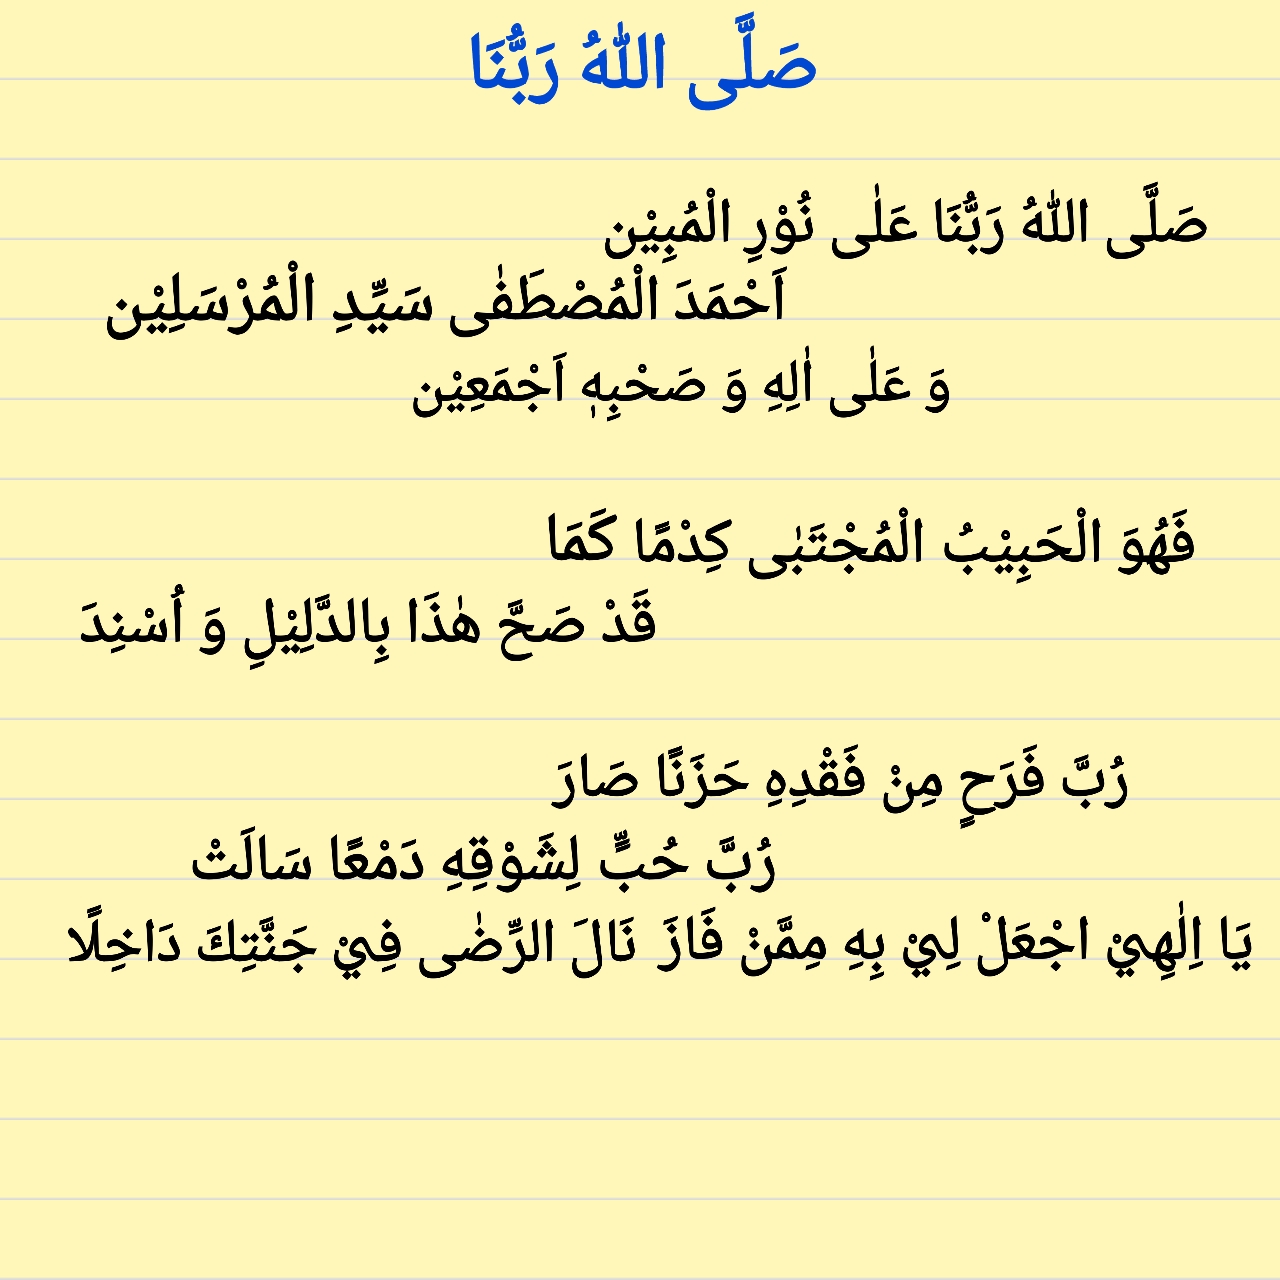 صَلَّى اللّٰهُ رَبُّنَا
صَلَّى اللّٰهُ رَبُّنَا عَلٰى نُوْرِ الْمُبِيْن
اَحْمَدَ الْمُصْطَفٰى سَيِّدِ الْمُرْسَلِيْن
وَ عَلٰى اٰلِهِ وَ صَحْبِهٖ اَجْمَعِيْن
فَهُوَ الْحَبِيْبُ الْمُجْتَبٰى كِدْمًا كَمَا
قَدْ صَحَّ هٰذَا بِالدَّلِيْلِ وَ اُسْنِدَ
رُبَّ فَرَحٍ مِنْ فَقْدِهِ حَزَنًا صَارَ
رُبَّ حُبٍّ لِشَوْقِهِ دَمْعًا سَالَتْ
يَا اِلٰهِيْ اجْعَلْ لِيْ بِهِ مِمَّنْ فَازَ نَالَ الرِّضٰى فِيْ جَنَّتِكَ دَاخِلًا